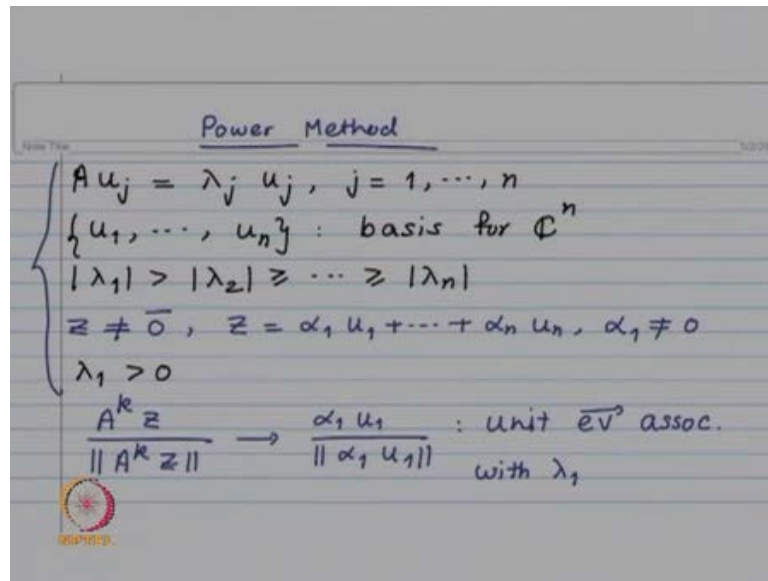 Power Method
A u_j = λ_j u_j, j = 1, ⋯, n
{u_1, ⋯, u_n} : basis for ℂ^n
|λ_1| > |λ_2| ≥ ⋯ ≥ |λ_n|
z ≠ 0̄, z = α_1 u_1 + ⋯ + α_n u_n, α_1 ≠ 0
λ_1 > 0
A^k z / ||A^k z|| → α_1 u_1 / ||α_1 u_1|| : unit ev⃗ assoc.
with λ_1